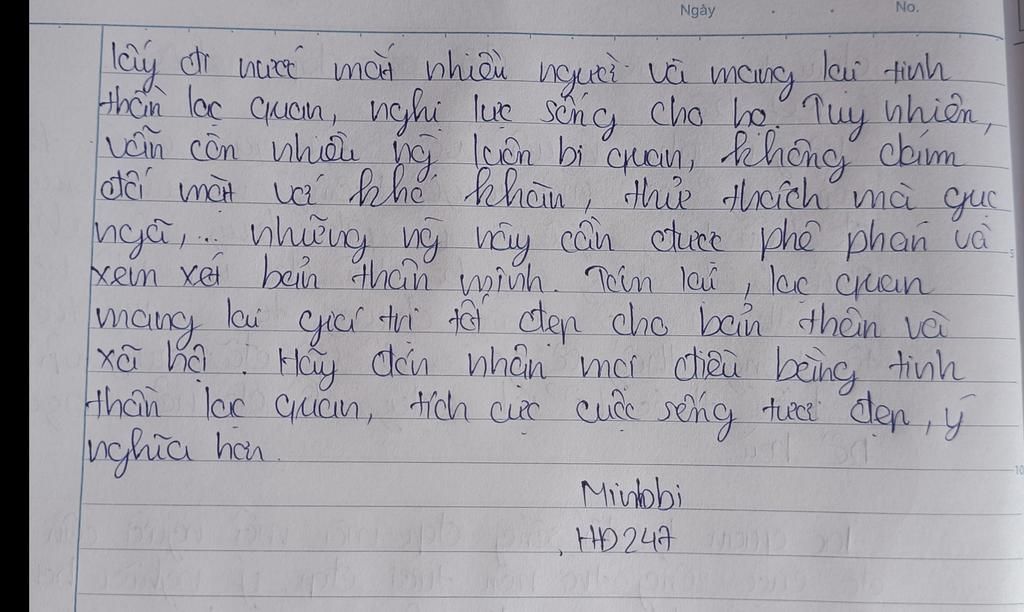 Ngày No.
lấy đi nước mắt nhiều người và mang lại tinh
thần lạc quan, nghị lực sống cho họ. Tuy nhiên,
vẫn còn nhiều ng̀ luôn bi quan, không dám
đối mặt với khó khăn, thử thách mà gục
ngã,... những ng̀ này cần được phê phán và
xem xét bản thân mình. Tóm lại, lạc quan
mang lại giá trị tốt đẹp cho bản thân và
xã hội. Hãy đón nhận mọi điều bằng tinh
thần lạc quan, tích cực cuộc sống tươi đẹp, ý
nghĩa hơn.
Minbbi
HD247